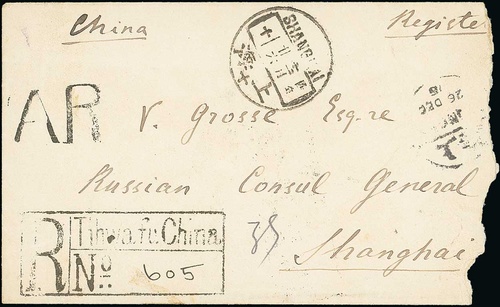 China
Registe
SHANGHAI
AR
V. Grosse Esq-re
26 DEC
Russian Consul General
Shanghai
35
R Tihwa.fu.China.
No 605